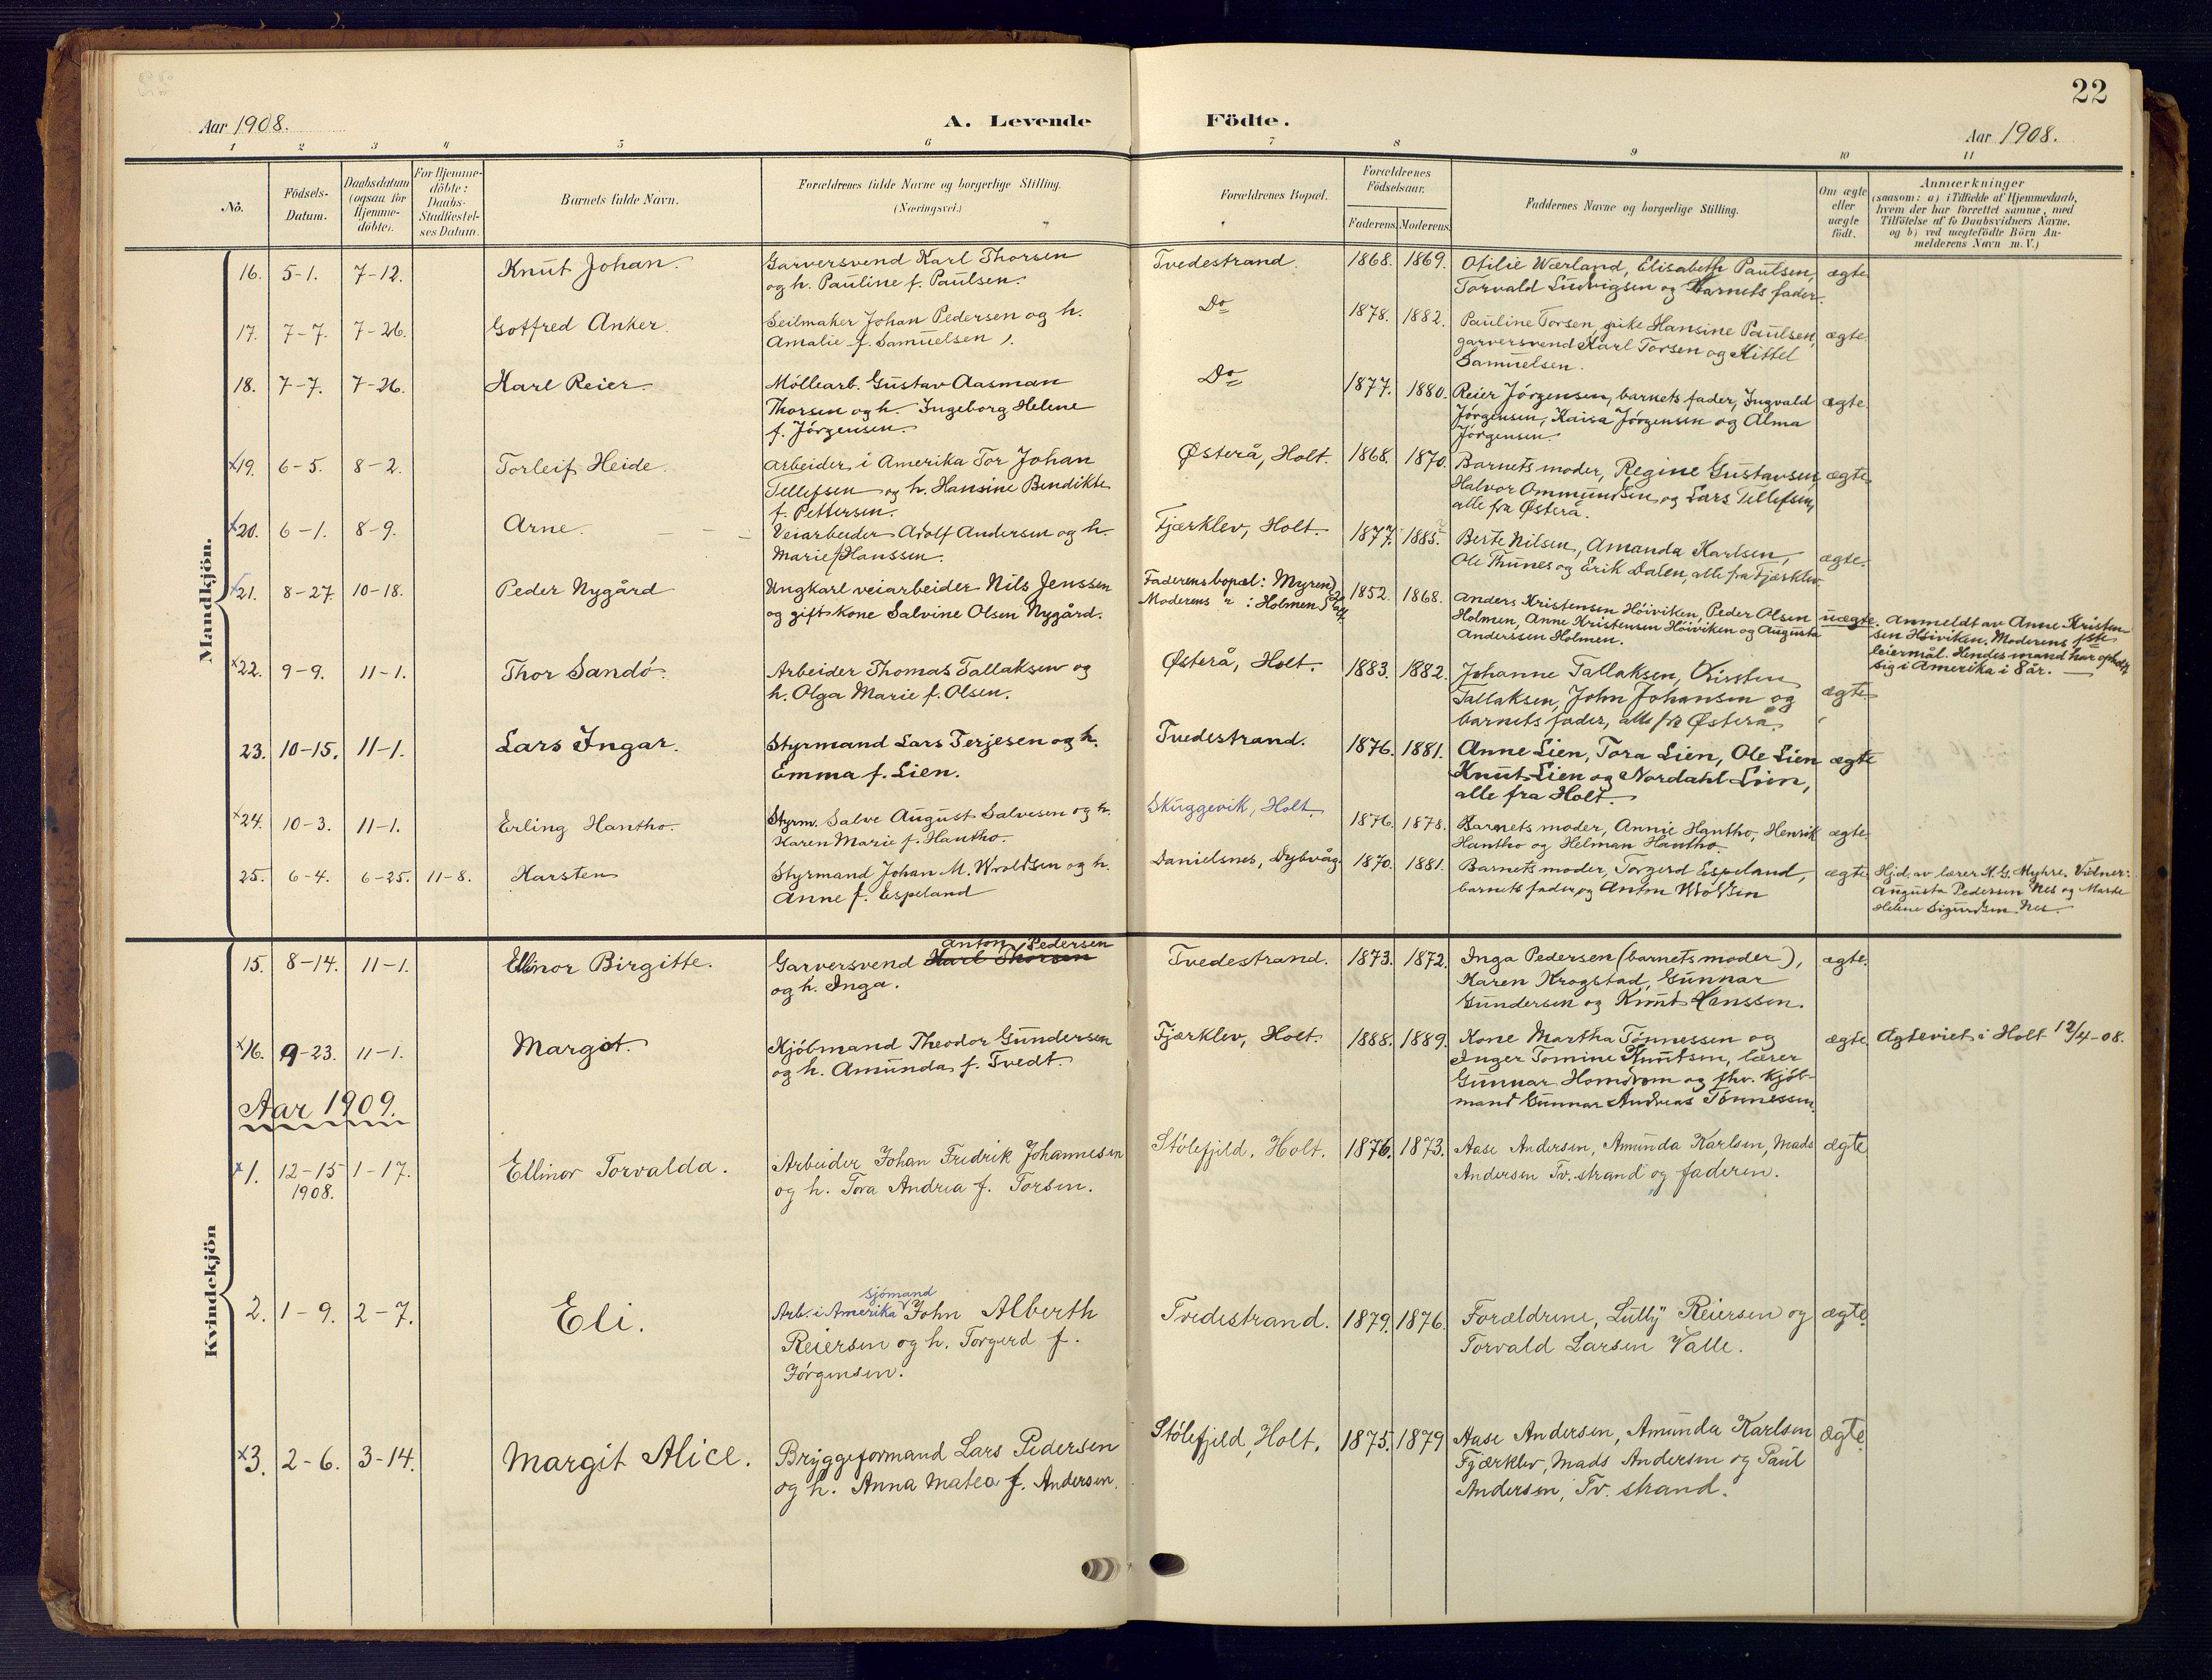 22
Aar 1908.
A. Levende Födte.
Aar 1908.
1 2 3 4 5 6 7 8 9 10 11
No.
Födsels-
Datum.
Daabsdatum
(ogsaa for
Hjemme-
döbte).
For Hjemme-
döbte:
Daabs-
Stadfæstel-
ses Datum.
Barnets fulde Navn.
Forældrenes fulde Navne og borgerlige Stilling.
(Næringsvei.)
Forældrenes Bopæl.
Forældrenes
Födselsaar.
Faderens. Moderens.
Faddernes Navne og borgerlige Stilling.
Om ægte
eller
uægte
födt.
Anmærkninger
(saasom: a) i Tilfælde af Hjemmedaab,
hvem der har forrettet samme, med
Tilföielse af to Daabsvidners Navne.
og b) ved uægtefödte Börn An-
melderens Navn m. V.)
Mandkjön.
16. 5-1. 7-12. Knut Johan.
Garversvend Karl Thorsen
og h. Pauline f. Paulsen.
Tvedestrand. 1868. 1869.
Otilie Wærland, Elisabeth Paulsen,
Torvald Ludvigsen og Barnets fader.
ægte
17. 7-7. 7-26. Gotfred Anker.
Seilmaker Johan Pedersen og h.
Amalie f. Samuelsen.
Do 1878. 1882.
Pauline Torsen, pike Hansine Paulsen,
garversvend Karl Torsen og Kittel
Samuelsen.
ægte.
18. 7-7. 7-26. Karl Reier.
Möllearb. Gustav Aasman
Thorsen og h. Ingeborg Helene
f. Jörgensen.
Do 1877. 1880.
Reier Jörgensen, barnets fader, Ingvald
Jörgensen, Kaisa Jörgensen og Alma
Jörgensen.
ægte.
x19. 6-5. 8-2. Torleif Heide.
Arbeider i Amerika Tor Johan
Tellefsen og h. Hansine Bendikte
f. Pettersen.
Østerå, Holt. 1868. 1870.
Barnets moder, Regine Gustavsen,
Halvor Ommundsen og Lars Tellefsen,
alle fra Østerå.
ægte
x20. 6-1. 8-9. Arne.
Veiarbeider Adolf Andersen og h.
Marie f. Hanssen.
Fjærklev, Holt. 1877. 1885.
Berte Nilsen, Amanda Karlsen,
Ole Thunes og Erik Dalen, alle fra Fjærklev
ægte.
x21. 8-27. 10-18. Peder Nygård
Ungkarl veiarbeider Nils Jenssen
og gift kone Salvine Olsen Nygård.
Faderens bopæl: Myren
Moderens " : Holmen
1852. 1868.
Anders Kristensen Höiviken, Peder Olsen
Holmen, Anne Kristensen Höiviken og Augusta
Anderssen Holmen.
uægte.
Anmeldt av Anne Kristen-
sen Höiviken. Moderens 1ste
leiermål. Hendes mand har opholdt
sig i Amerika i 8 år.
x22. 9-9. 11-1. Thor Sandö.
Arbeider Thomas Tallaksen og
h. Olga Marie f. Olsen.
Østerå, Holt. 1883. 1882.
Johanne Tallaksen, Kirsten
Tallaksen, John Johansen og
barnets fader, alle fra Østerå.
ægte
23. 10-15. 11-1. Lars Ingar.
Styrmand Lars Terjesen og h.
Emma f. Lien.
Tvedestrand. 1876. 1881.
Anne Lien, Tora Lien, Ole Lien
Knut Lien og Nordahl Lien,
alle fra Holt.
ægte
x24. 10-3. 11-1. Erling Hantho.
Styrm. Salve August Salvesen og h.
Karen Marie f. Hantho.
Skuggevik, Holt. 1876. 1878.
Barnets moder, Annie Hantho, Henrik
Hantho og Helman Hantho.
ægte.
25. 6-4. 6-25. 11-8. Karsten
Styrmand Johan M. Wroldsen og h.
Anne f. Espeland
Danielsnes, Dybvåg. 1870. 1881.
Barnets moder, Torgerd Espeland,
barnets fader, og Anton Wroldsen
ægte
Hjd. av lærer K. G. Myhre. Vidner:
Augusta Pedersen Nes og
Helene Sigurdsen Nes.
Kvindekjön
15. 8-14. 11-1. Ellinor Birgitte.
Anton Pedersen
Garversvend Karl Thorsen
og h. Inga.
Tvedestrand. 1873. 1872.
Inga Pedersen (barnets moder),
Karen Krogstad, Gunnar
Gundersen og Knut Hanssen.
ægte.
x16. 9-23. 11-1. Margit.
Kjöbmand Theodor Gundersen
og h. Amunda f. Tvedt.
Fjærklev, Holt. 1888. 1889.
Kone Martha Tönnessen og
Inger Tomine Knutsen, lærer
Gunnar Homdrom og fhv. kjöb-
mand Gunnar Andreas Tönnessen.
ægte.
Ægteviet i Holt 12/4-08.
Aar 1909.
x1. 12-15 1-17. Ellinor Torvalda.
1908.
Arbeider Johan Fredrik Johannesen
og h. Tora Andrea f. Torsen.
Stölefjeld, Holt. 1876. 1873.
Aase Andersen, Amunda Karlsen, Mads
Andersen Tv.strand og faderen.
ægte
2. 1-9. 2-7. Eli.
sjömand
Arb. i Amerika John Alberth
Reiersen og h. Torgerd f.
Jörgensen.
Tvedestrand. 1879. 1876.
Forældrene, Lully Reiersen og
Torvald Larsen Valle.
ægte.
x3. 2-6. 3-14. Margit Alice.
Bryggeformand Lars Pedersen
og h. Anna Matea f. Andersen.
Stölefjeld, Holt. 1875. 1879
Aase Andersen, Amunda Karlsen
Fjærklev, Mads Andersen og Paul
Andersen, Tv. strand.
ægte.